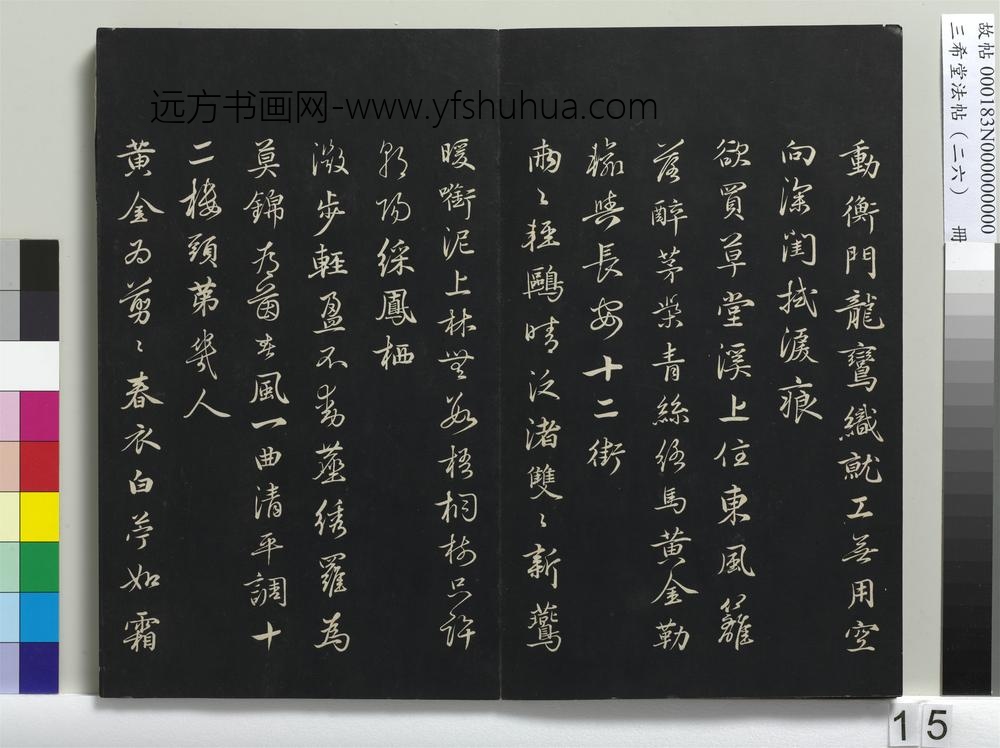 远方书画网-www.yfshuhua.com
故帖 000183N000000000
三希堂法帖（二六） 冊
動衡門龍鸞織就工無用空
向深閨拭淚痕
欲買草堂溪上住東風籬
落醉茅柴青絲絡馬黃金勒
輸與長安十二街
兩〻輕鷗晴泛渚雙〻新燕
暖銜泥上林無數梧桐樹只許
朝陽綵鳳栖
微步輕盈不動塵綉羅為
莫錦為茵春風一曲清平調十
二樓頭第幾人
黃金為剪〻春衣白苧如霜
15